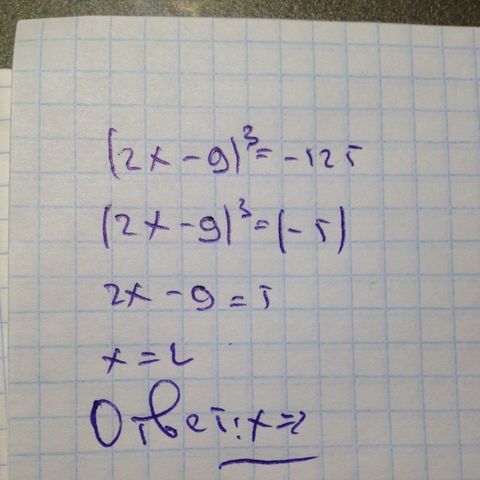 (2x-9)³=-125
(2x-9)³=(-5)
2x-9=5
x=2
Ответ: x=2